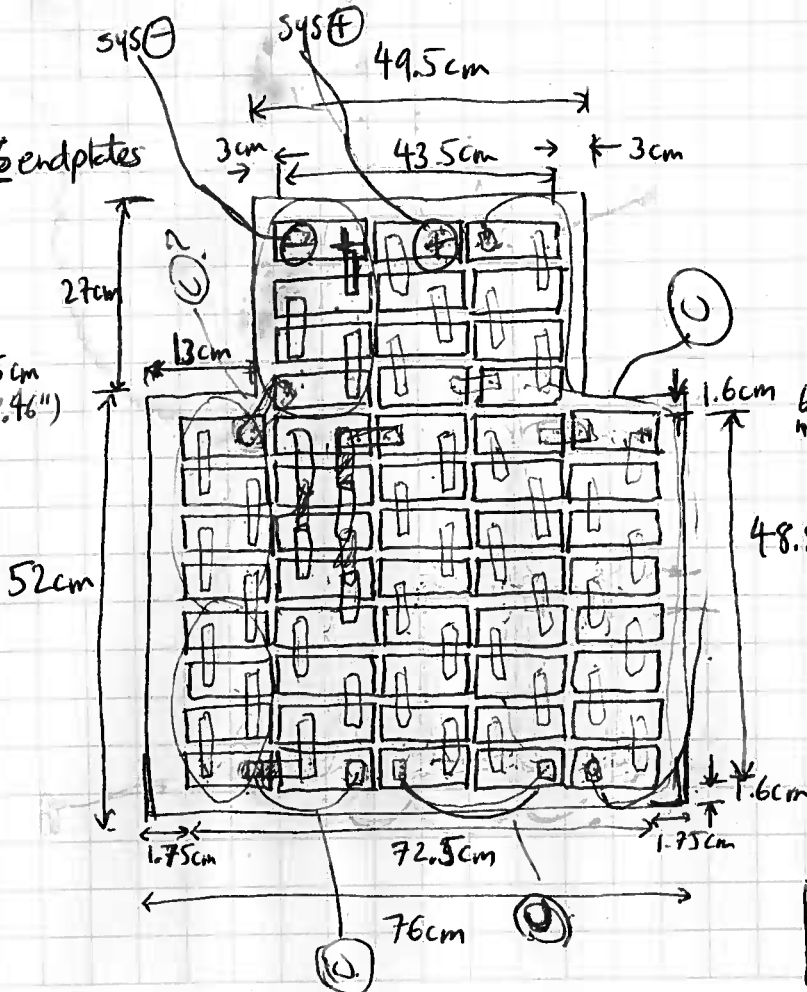 sys⊖
sys⊕
49.5cm
endplates
3cm
43.5cm
3cm
27cm
?
13cm
5cm
.46")
− +
+
1.6cm
52cm
48.
1.6cm
1.75cm
72.5cm
1.75cm
76cm